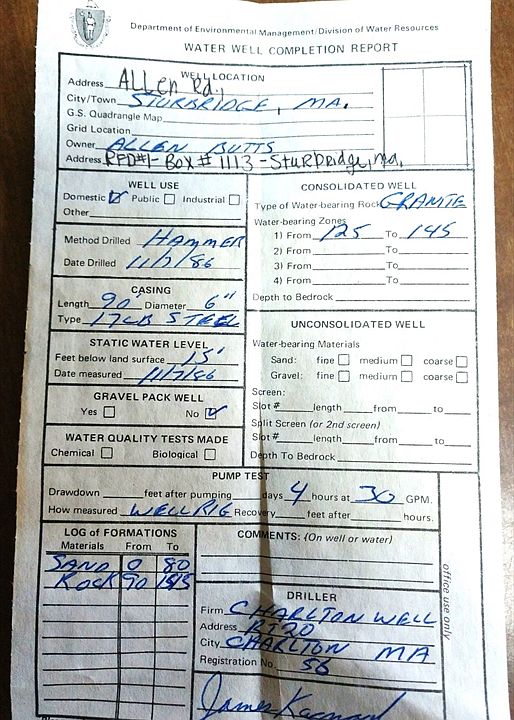 Department of Environmental Management/Division of Water Resources
WATER WELL COMPLETION REPORT
WELL LOCATION
Address ALLen Rd.,
City/Town STURBRIDGE, MA.
G.S. Quadrangle Map
Grid Location
Owner ALLEN BUTTS
Address RFD#1- BOX # 1113 - Sturbridge, ma.
WELL USE
Domestic Public Industrial
Other
Method Drilled HAMMER
Date Drilled 11/7/86
CASING
Length 90' Diameter 6"
Type 17LB STEEL
STATIC WATER LEVEL
Feet below land surface 15'
Date measured 11/7/86
GRAVEL PACK WELL
Yes No
WATER QUALITY TESTS MADE
Chemical Biological
CONSOLIDATED WELL
Type of Water-bearing Rock GRANITE
Water-bearing Zones
1) From 125 To 145
2) From To
3) From To
4) From To
Depth to Bedrock
UNCONSOLIDATED WELL
Water-bearing Materials
Sand: fine medium coarse
Gravel: fine medium coarse
Screen:
Slot # length from to
Split Screen (or 2nd screen)
Slot # length from to
Depth To Bedrock
PUMP TEST
Drawdown feet after pumping days 4 hours at 30 GPM.
How measured WELL RIG Recovery feet after hours.
LOG of FORMATIONS
Materials From To
SAND 0 80
ROCK 90
COMMENTS: (On well or water)
DRILLER
Firm CHARLTON WELL
Address RT 20
City CHARLTON MA
Registration No. 56
James
office use only